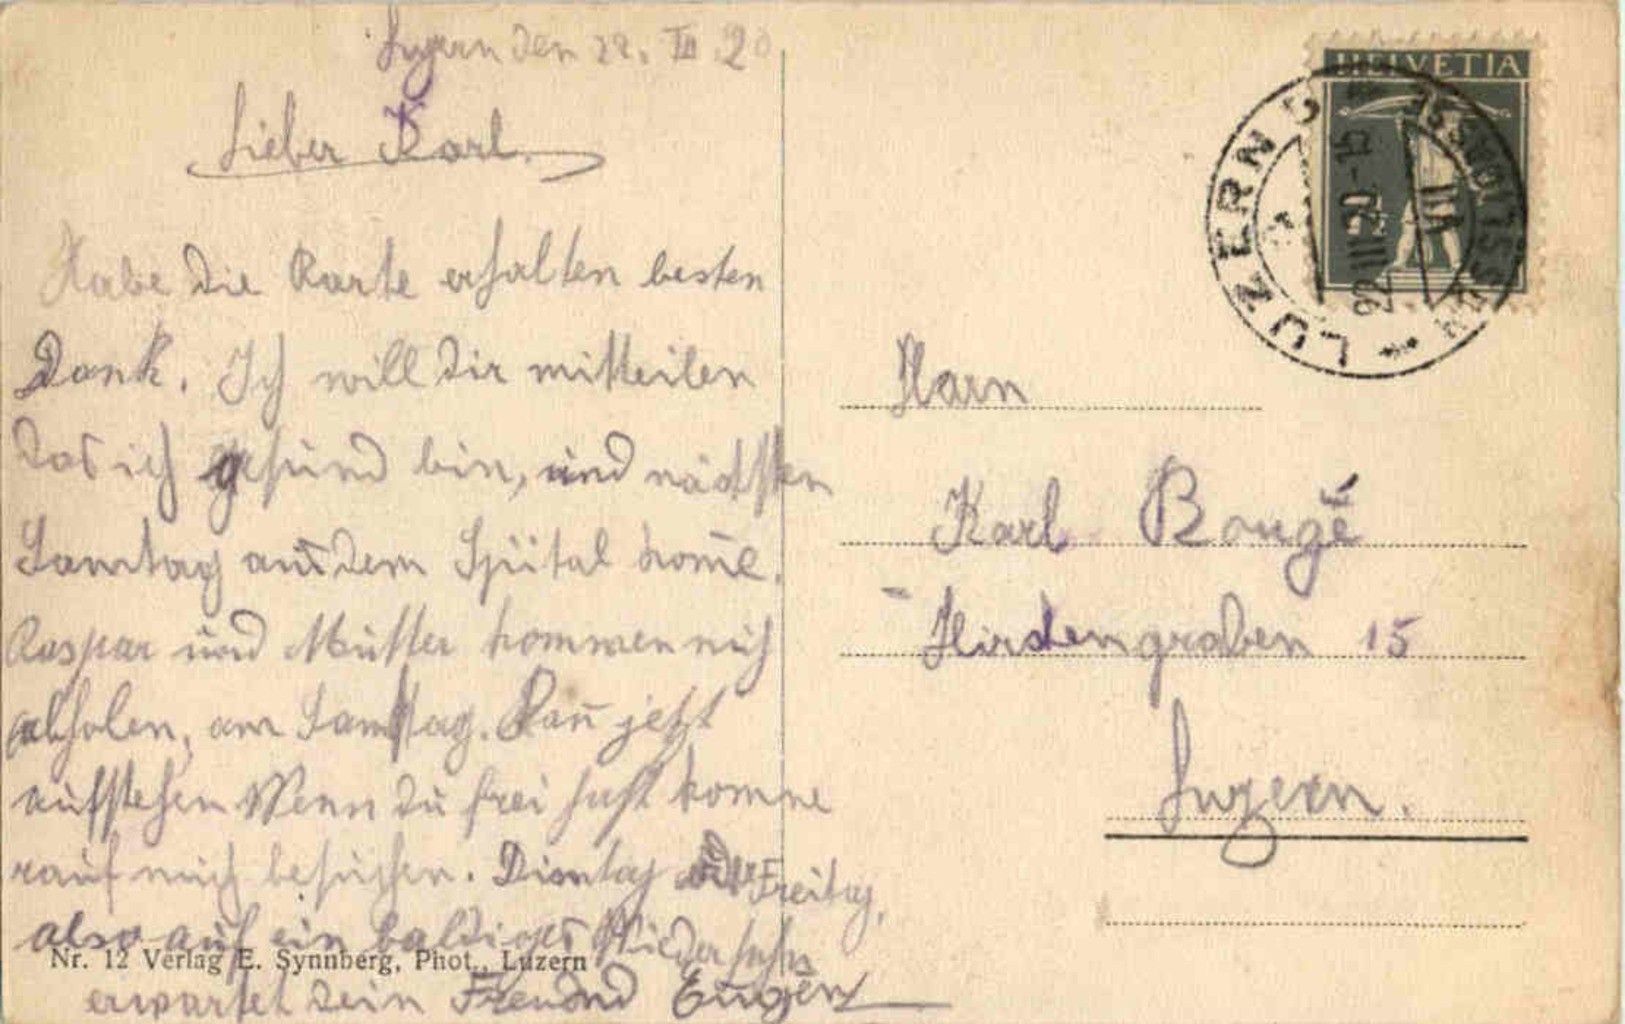 Luzern den 22. III 20
Lieber Karl.
Habe die Karte erhalten besten
Dank. Ich will dir mitteilen
das ich gesund bin, und nächsten
Samstag aus dem Spital kom̅e.
Kaspar und Mutter kommen mich
abholen, am Samstag. Kan̅ jetzt
aufstehen Wenn du frei hast komme
rauf mich besuchen. Dinstag oder Freitag,
also auf ein baldiges Wiedersehn
erwartet dein Freund Eugen
Nr. 12 Verlag E. Synnberg, Phot., Luzern
HELVETIA
LUZERN
22 III 20 - 15
VII
Herrn
Karl Bougé
Hirschengraben 15
Luzern.